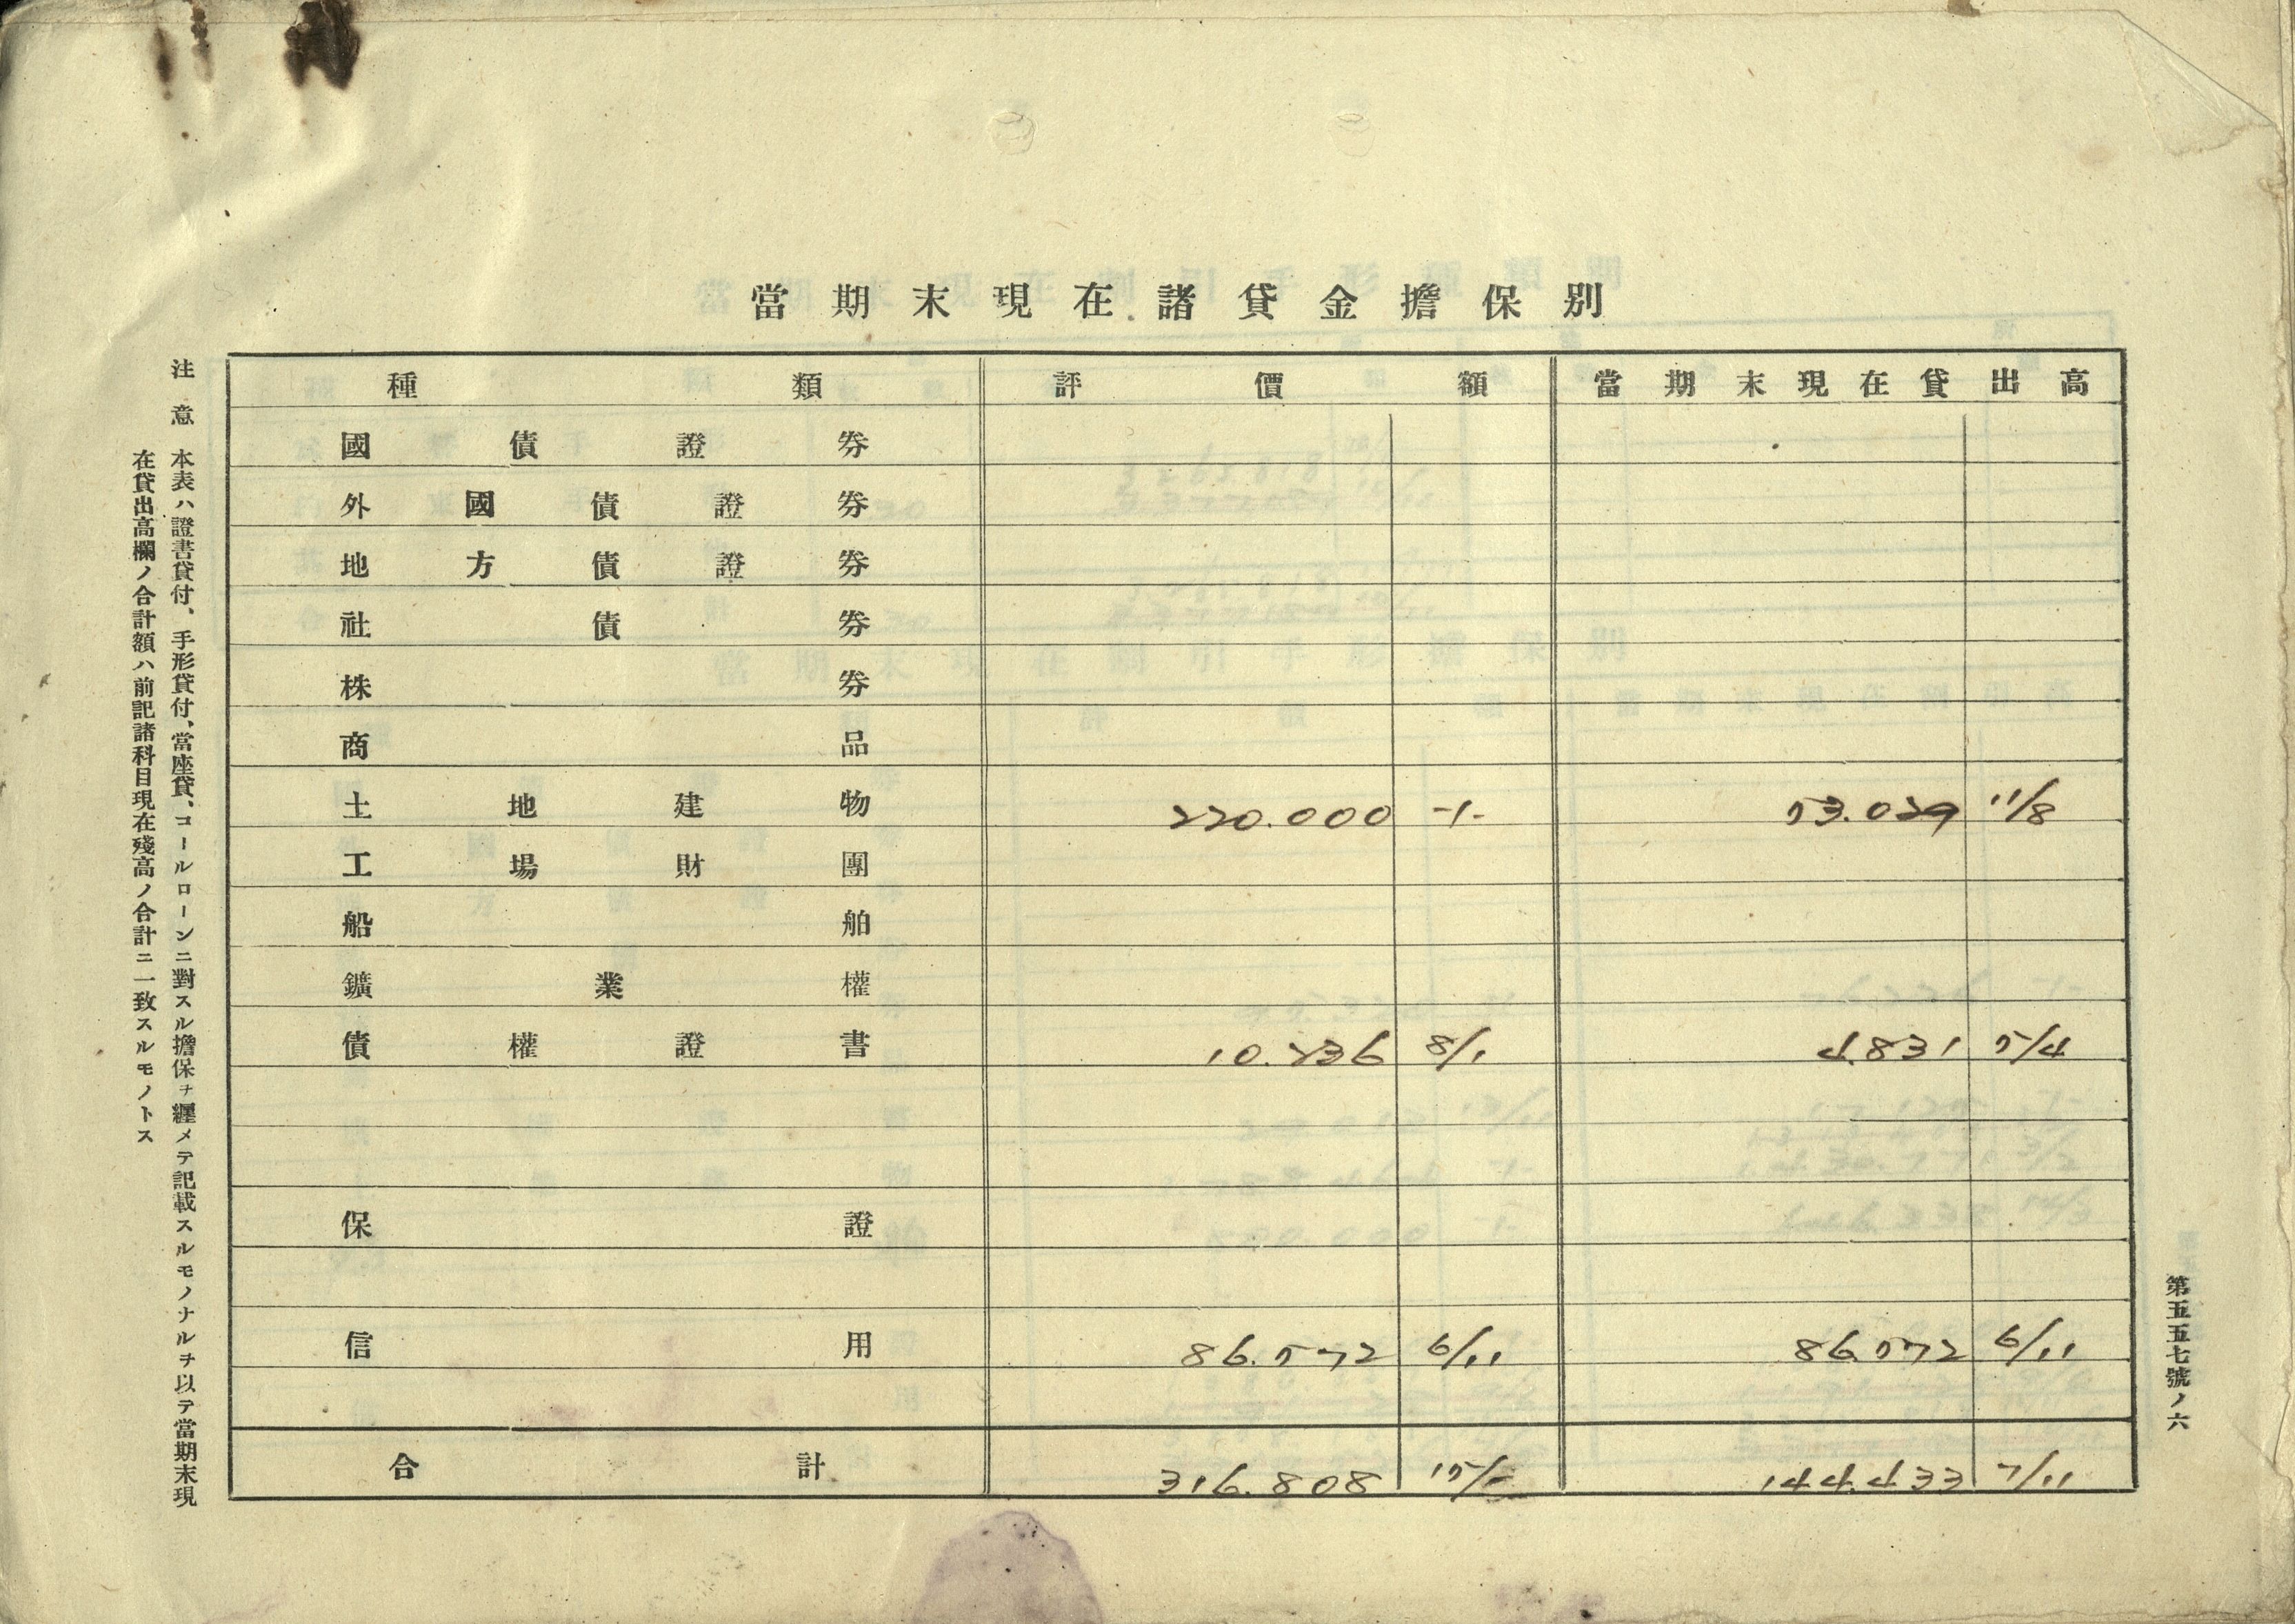 當期末現在諸貸金擔保別
種類 評價額 當期末現在貸出高
國債證券
外國債證券
地方債證券
社債券
株券
商品
土地建物 220.000 -/- 53.029 11/8
工場財團
船舶
鑛業權
債權證書 10.236 8/1 4.831 5/4
保證
信用 86.572 6/11 86.572 6/11
合計 316.808 15/- 144.433 7/11
第五五七號ノ六
注意 本表ハ證書貸付、手形貸付、當座貸、コールローンニ對スル擔保ヲ纒メテ記載スルモノナルヲ以テ當期末現
在貸出高欄ノ合計額ハ前記諸科目現在殘高ノ合計ニ一致スルモノトス